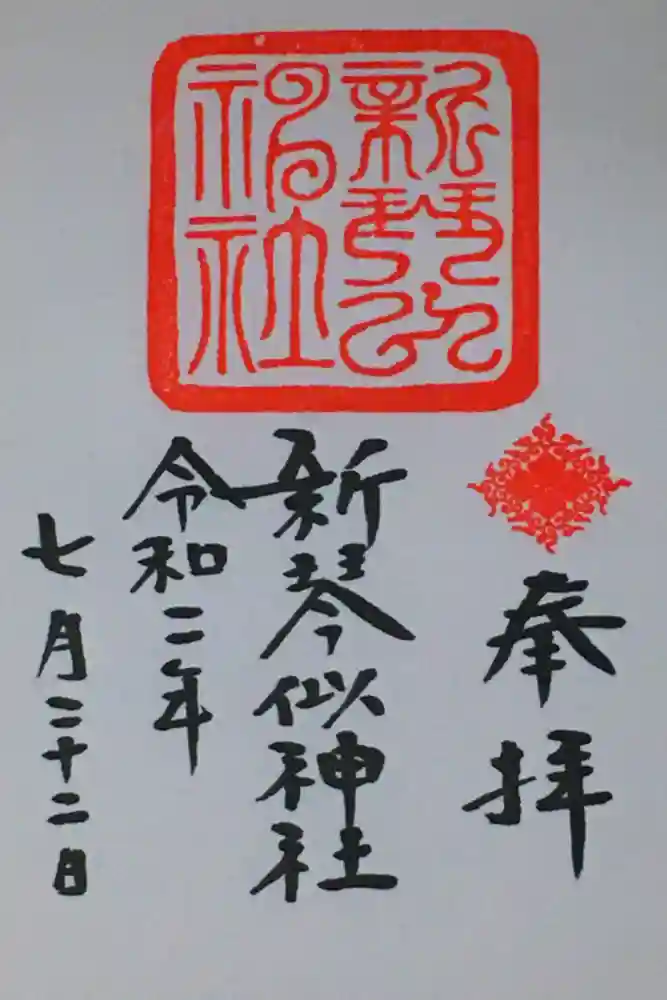 奉拝
新琴似神社
令和二年
七月二十二日
新琴似
神社